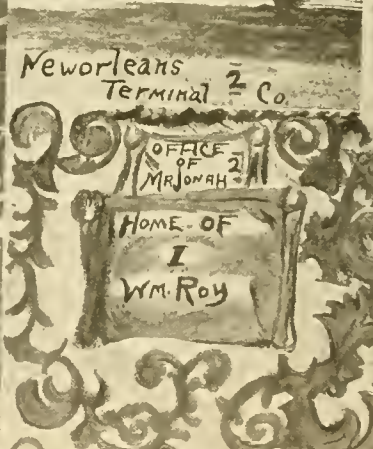 Neworleans
Terminal 2 Co.
OFFICE
OF 2
MR JONAH
HOME OF
I
WM. ROY